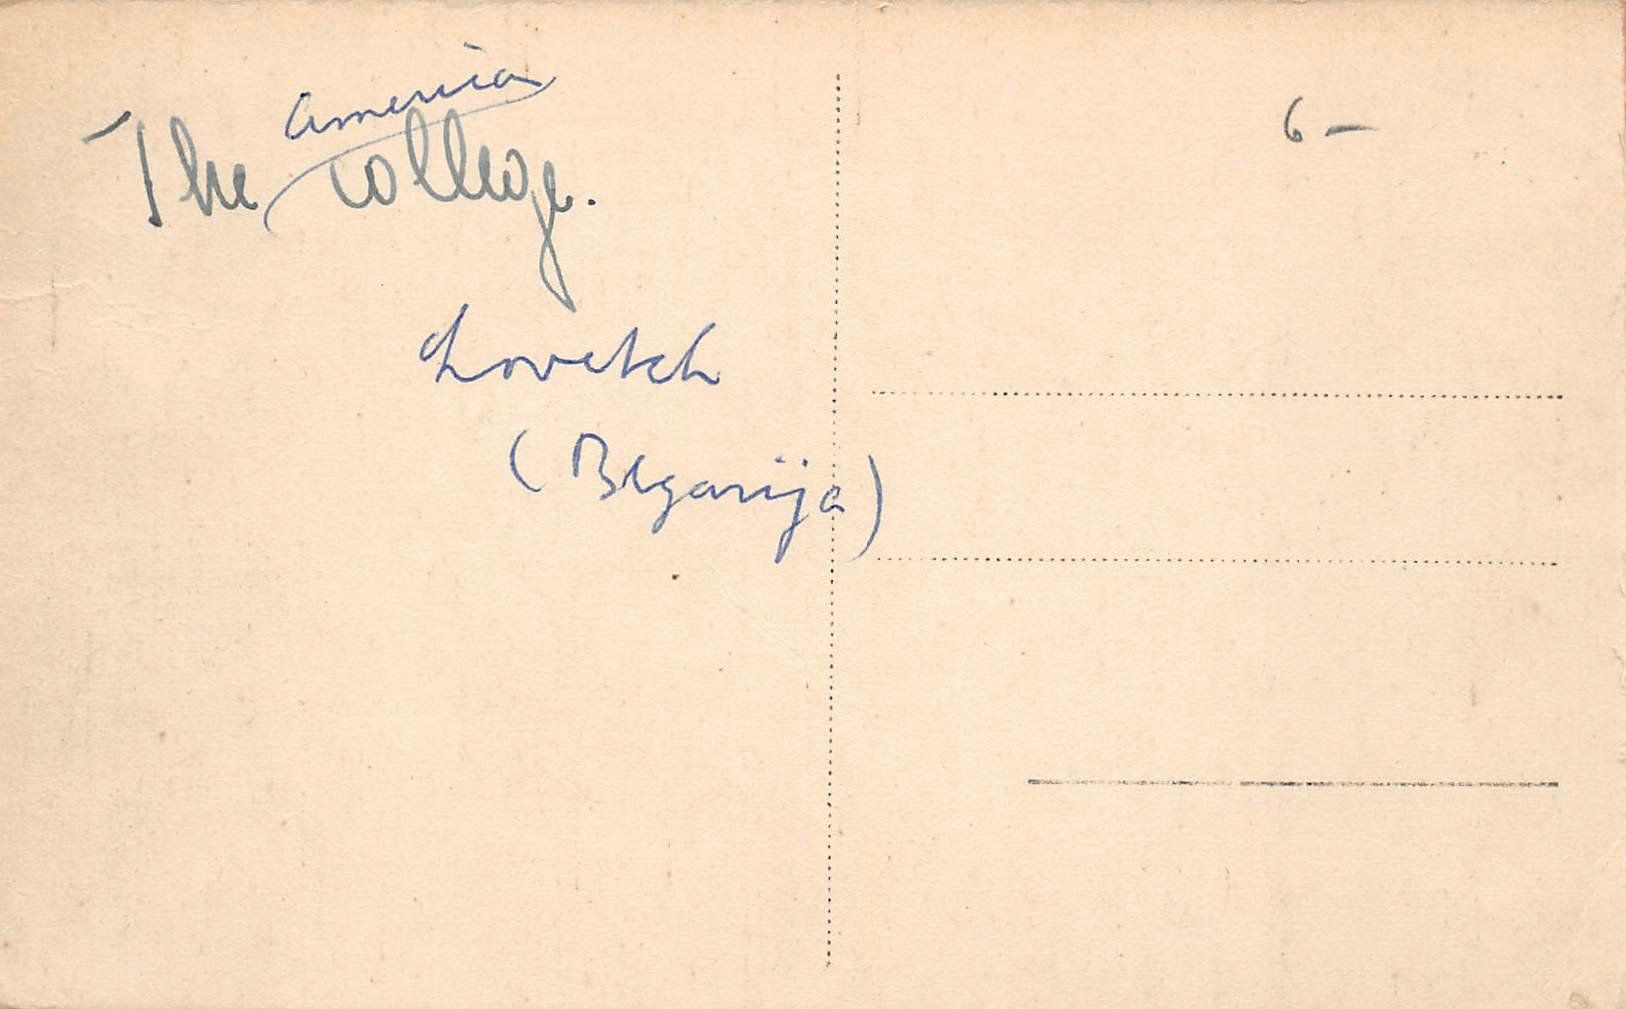 america
The College.
Lovetch
(Blgarija)
6 –